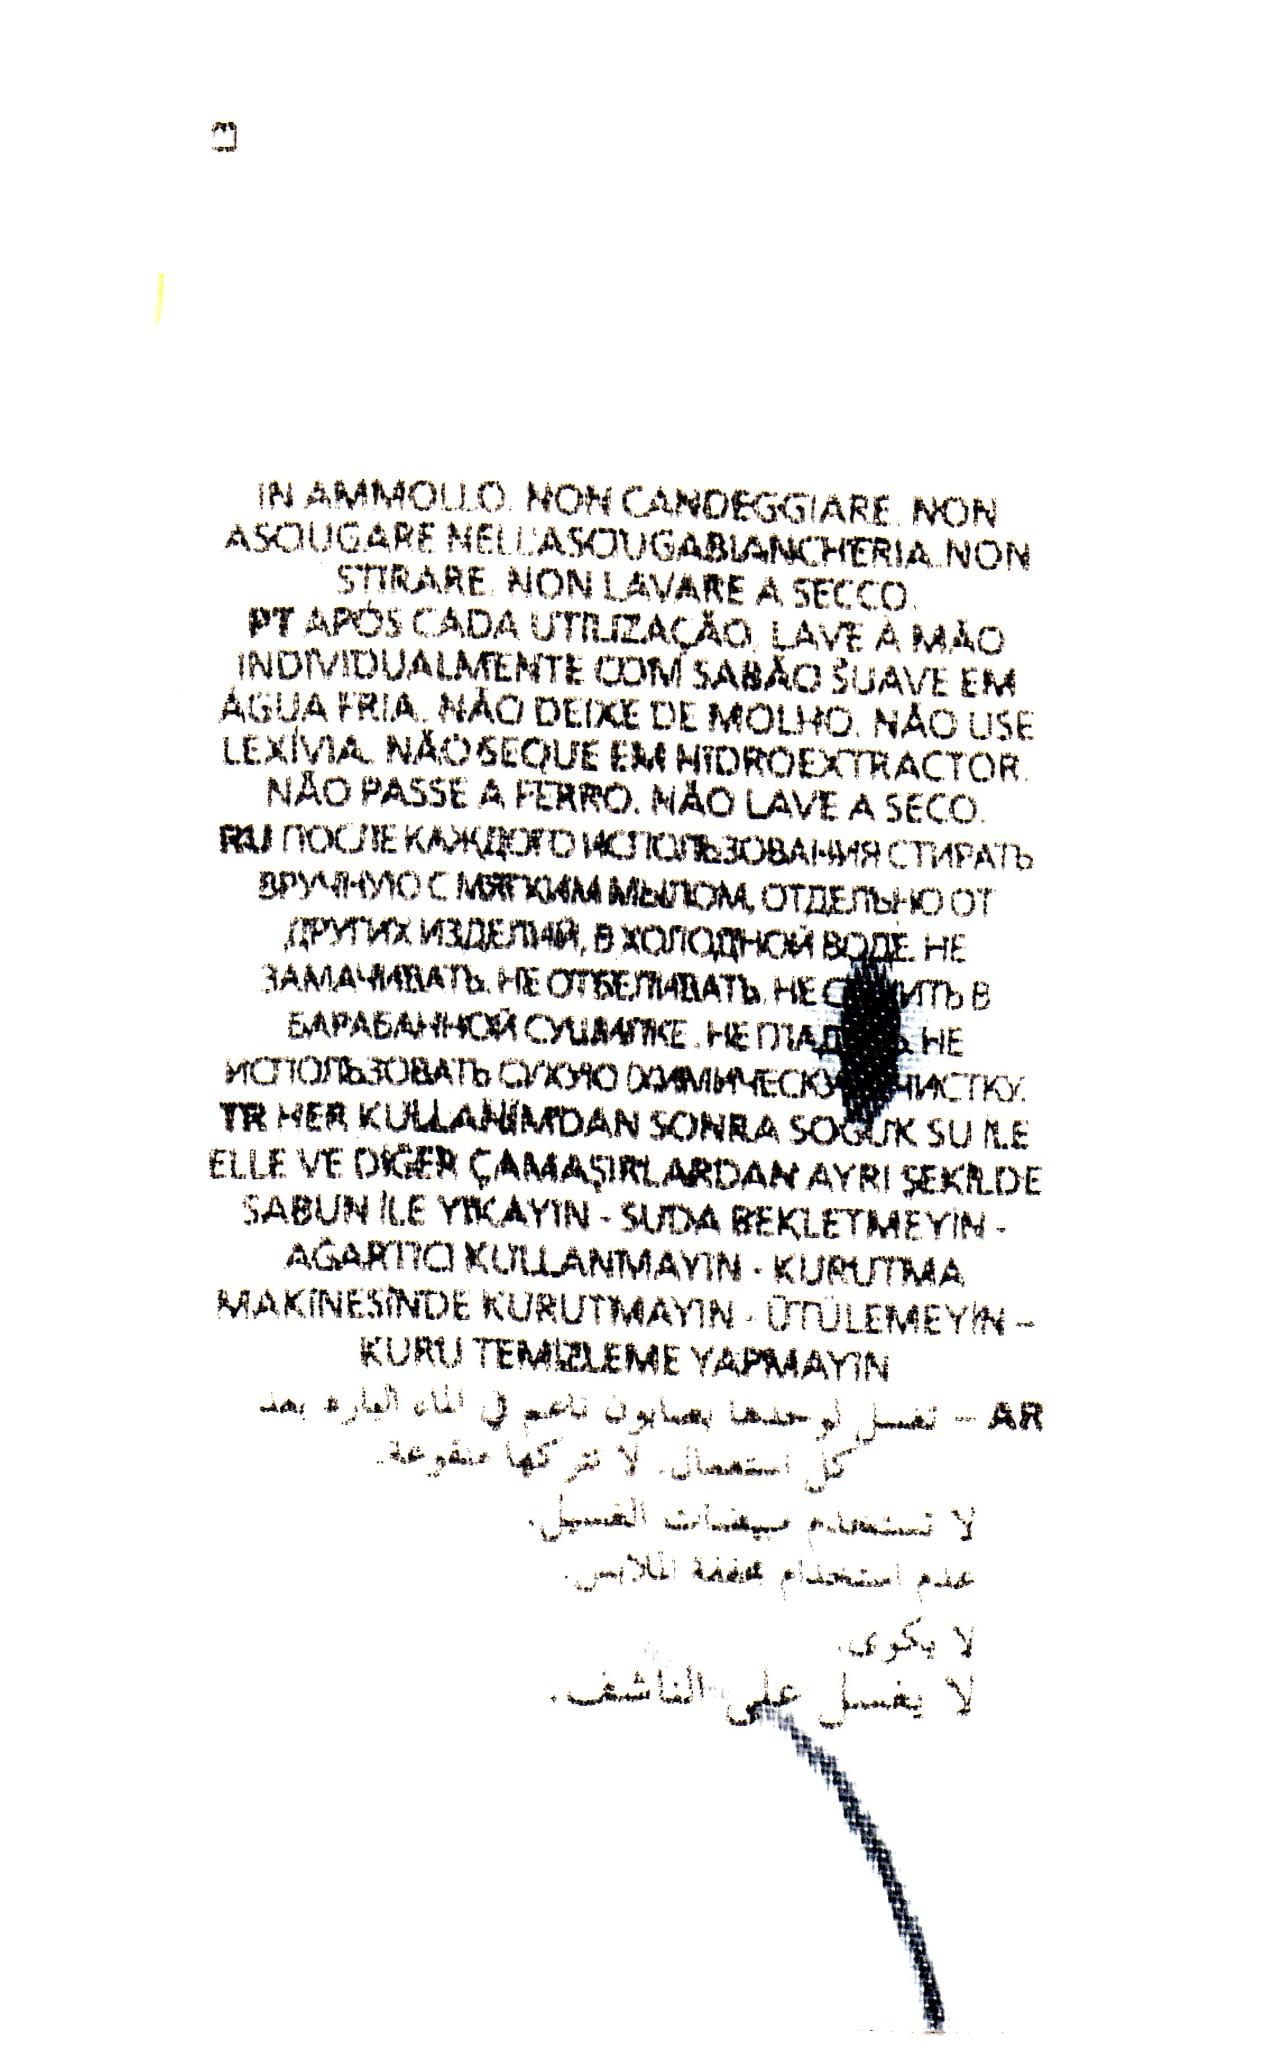 IN AMMOLLO. NON CANDEGGIARE. NON
ASCIUGARE NELL'ASCIUGABIANCHERIA. NON
STIRARE. NON LAVARE A SECCO.
PT APÓS CADA UTILIZAÇÃO, LAVE À MÃO
INDIVIDUALMENTE COM SABÃO SUAVE EM
ÁGUA FRIA. NÃO DEIXE DE MOLHO. NÃO USE
LEXÍVIA. NÃO SEQUE EM HIDROEXTRACTOR.
NÃO PASSE A FERRO. NÃO LAVE A SECO.
RU ПОСЛЕ КАЖДОГО ИСПОЛЬЗОВАНИЯ СТИРАТЬ
ВРУЧНУЮ С МЯГКИМ МЫЛОМ, ОТДЕЛЬНО ОТ
ДРУГИХ ИЗДЕЛИЙ, В ХОЛОДНОЙ ВОДЕ. НЕ
ЗАМАЧИВАТЬ. НЕ ОТБЕЛИВАТЬ. НЕ В
БАРАБАННОЙ СУШИЛКЕ. НЕ НЕ
ИСПОЛЬЗОВАТЬ СУХУЮ (ХИМИЧЕСКУЮ) ЧИСТКУ.
TR HER KULLANIMDAN SONRA SOĞUK SU İLE
ELLE VE DİĞER ÇAMAŞIRLARDAN AYRI ŞEKİLDE
SABUN İLE YIKAYIN - SUDA BEKLETMEYİN -
AĞARTICI KULLANMAYIN - KURUTMA
MAKİNESİNDE KURUTMAYIN - ÜTÜLEMEYİN –
KURU TEMİZLEME YAPMAYIN
AR – تغسل لوحدها بصابون ناعم في الماء البارد بعد
كل استعمال. لا تتركها منقوعة.
لا تستخدم مبيضات الغسيل.
عدم استخدام مجففة الملابس.
لا يكوى.
لا يغسل على الناشف.